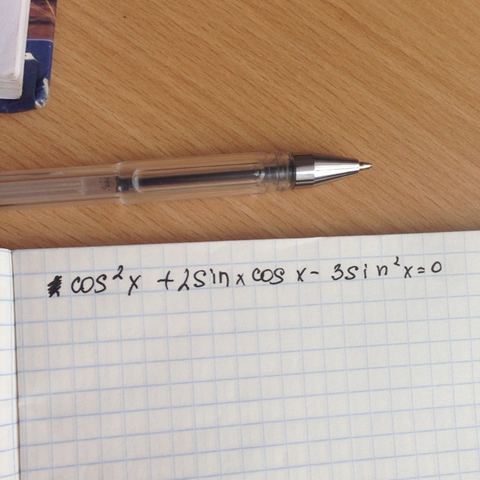 cos²x + 2sin x cos x - 3sin²x = 0